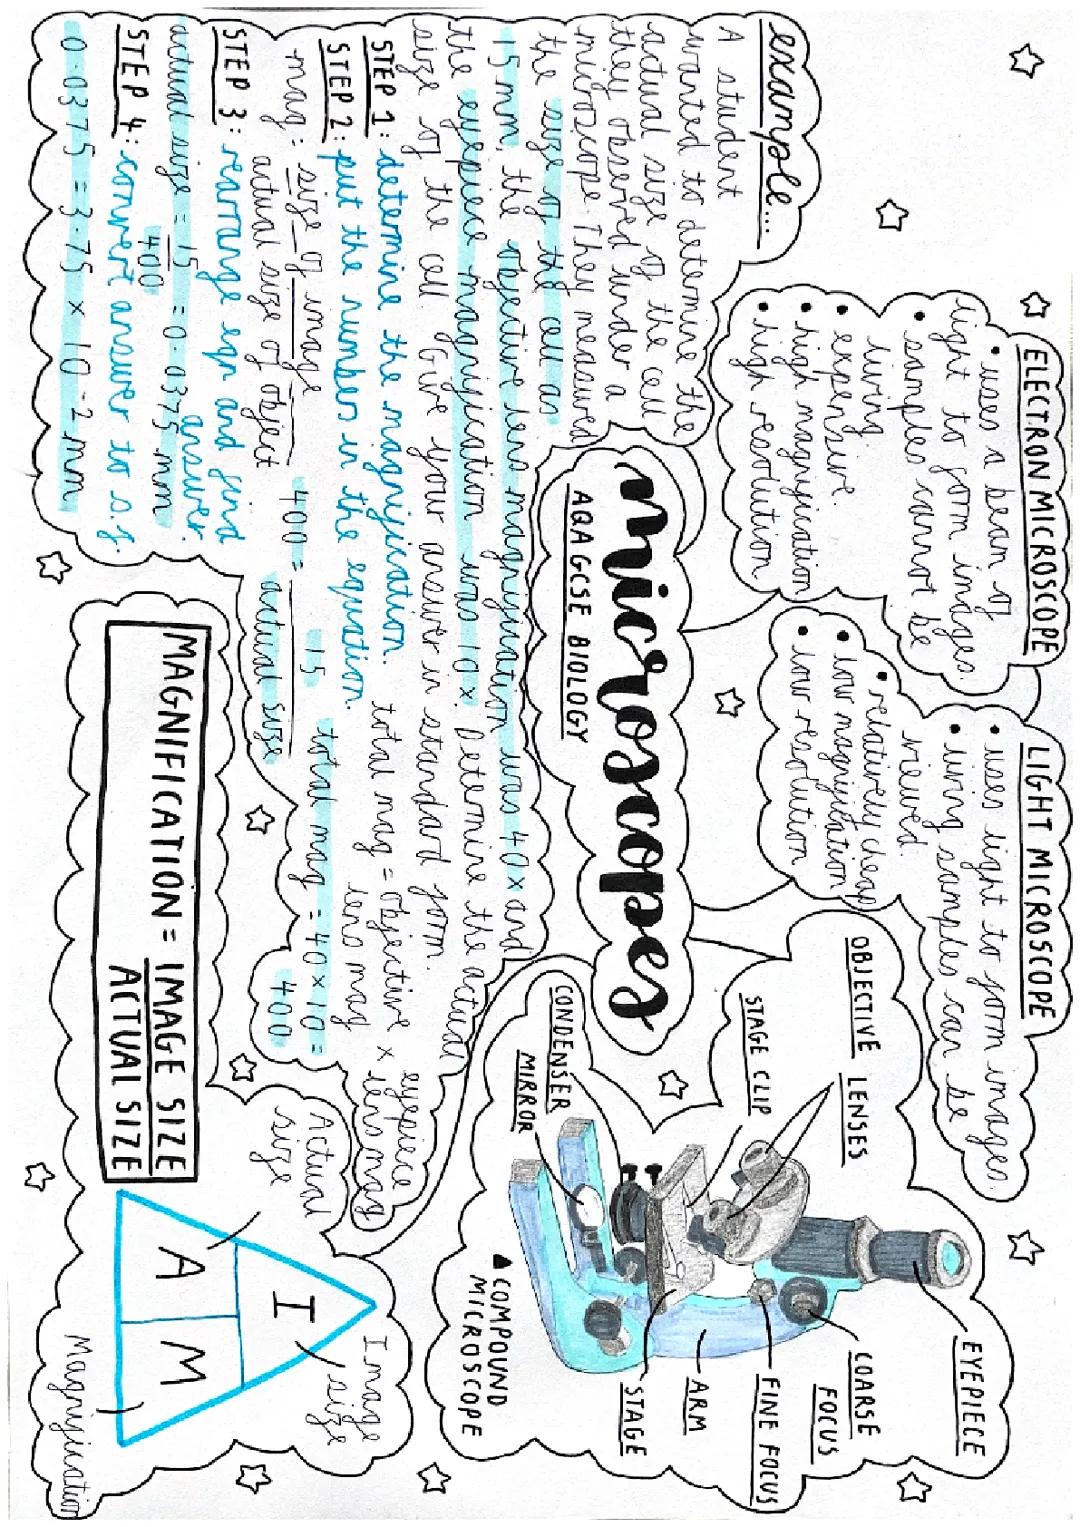 microscopes
AQA GCSE BIOLOGY
ELECTRON MICROSCOPE
• uses a beam of
light to form images.
• samples cannot be
living
• expensive.
• high magnification
• high resolution
LIGHT MICROSCOPE
• uses light to form images.
• living samples can be
viewed.
• relatively cheap
• low magnification
• low resolution
OBJECTIVE LENSES
STAGE CLIP
CONDENSER
MIRROR
EYEPIECE
COARSE
FOCUS
FINE FOCUS
ARM
STAGE
▲ COMPOUND
MICROSCOPE
example....
A student
wanted to determine the
actual size of the cell
they observed under a
microscope. They measured
the size of the cell as
15 mm, the objective lens magnification was 40x and
the eyepiece magnification was 10x. Determine the actual
size of the cell. Give your answer in standard form.
STEP 1: determine the magnification.
total mag = objective x eyepiece
lens mag lens mag
total mag = 40 x 10 =
400
STEP 2: put the number in the equation.
mag = size of image
actual size of object
400 = 15
actual size
STEP 3: rearrange eqn and find
answer.
actual size = 15 = 0.0375 mm
400
STEP 4: convert answer to s.f.
0.0375 = 3.75 x 10 -2 mm
MAGNIFICATION = IMAGE SIZE
ACTUAL SIZE
Image
size
Actual
size
I
A M
Magnification